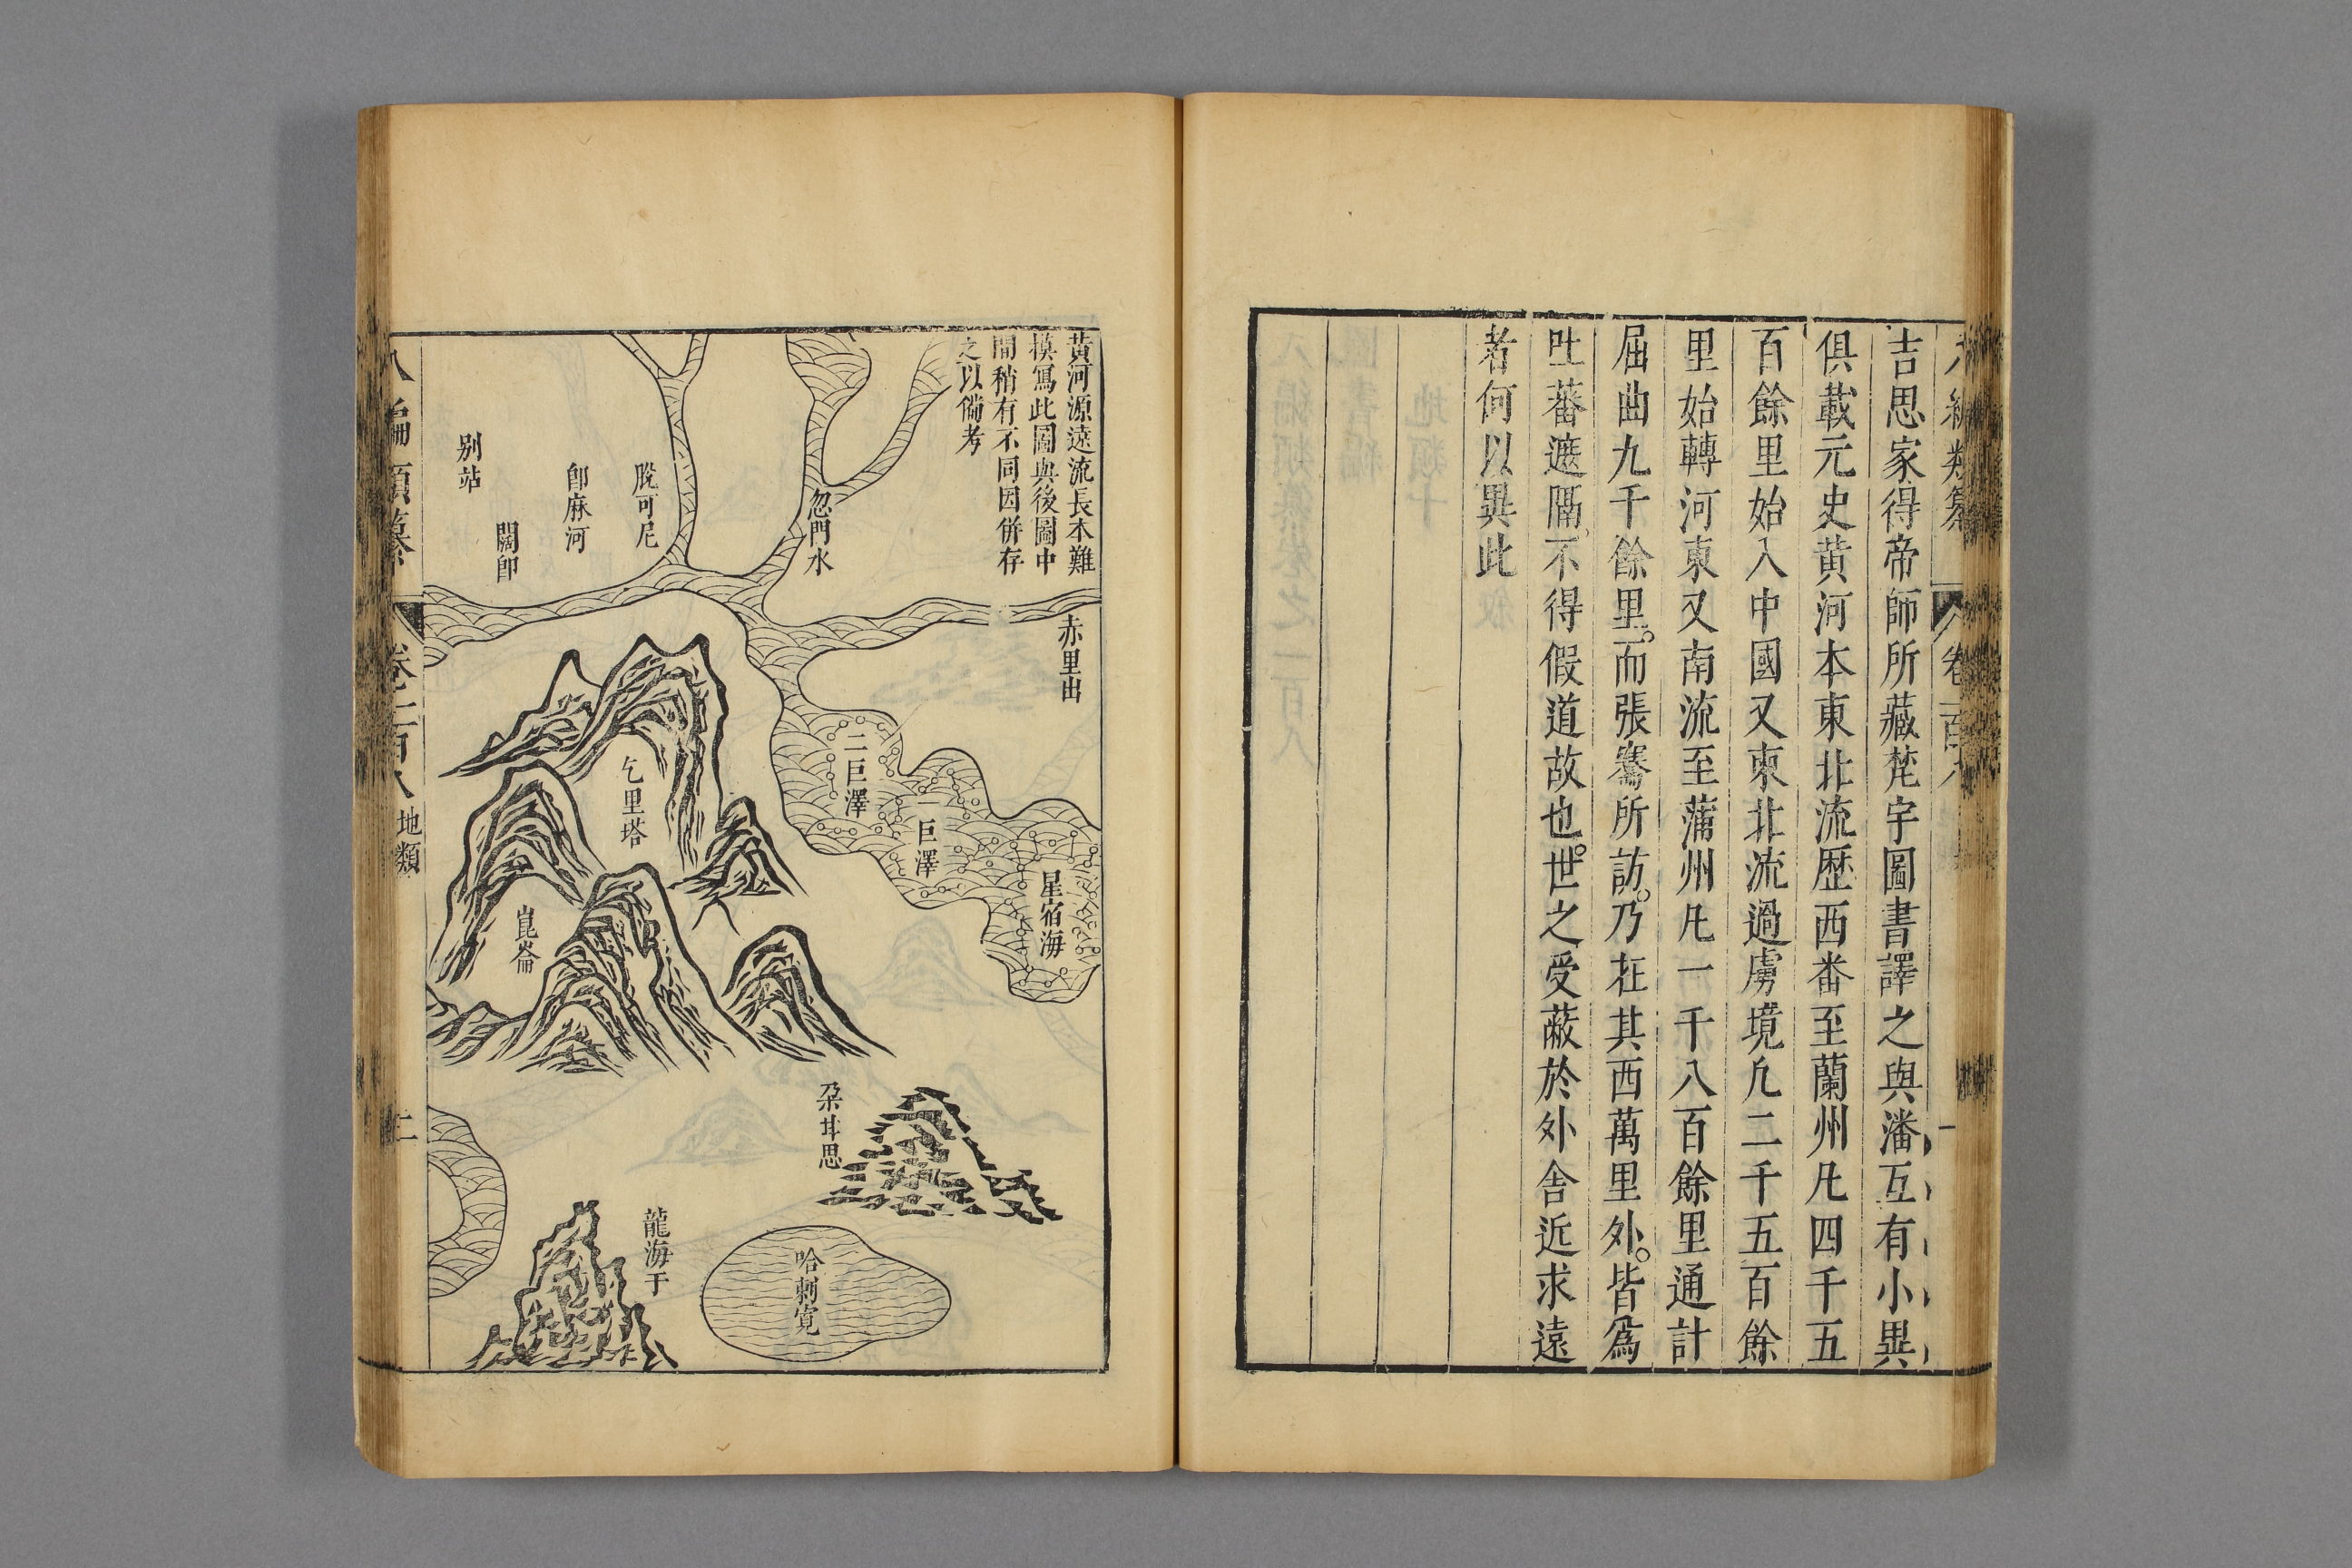 八編類纂 卷二百八 一
吉思家得帝師所藏梵字圖書譯之與潘互有小異
俱載元史黃河本東北流歷西番至蘭州凡四千五
百餘里始入中國又東北流過虜境凡二千五百餘
里始轉河東又南流至蒲州凡一千八百餘里通計
屈曲九千餘里。而張騫所訪。乃在其西萬里外。皆爲
吐蕃遮隔。不得假道故也。世之受蔽於外舍近求遠
者何以異此
黃河源遠流長本難
摸寫此圖與後圖中
間稍有不同因併存
之以備考
赤里出
忽門水
脫可尼
卽麻河
闊卽
別站
二巨澤
一巨澤
星宿海
乞里塔
崑崙
朶耳思
龍海于
哈剌寬
八編類纂 卷二百八 地類 二